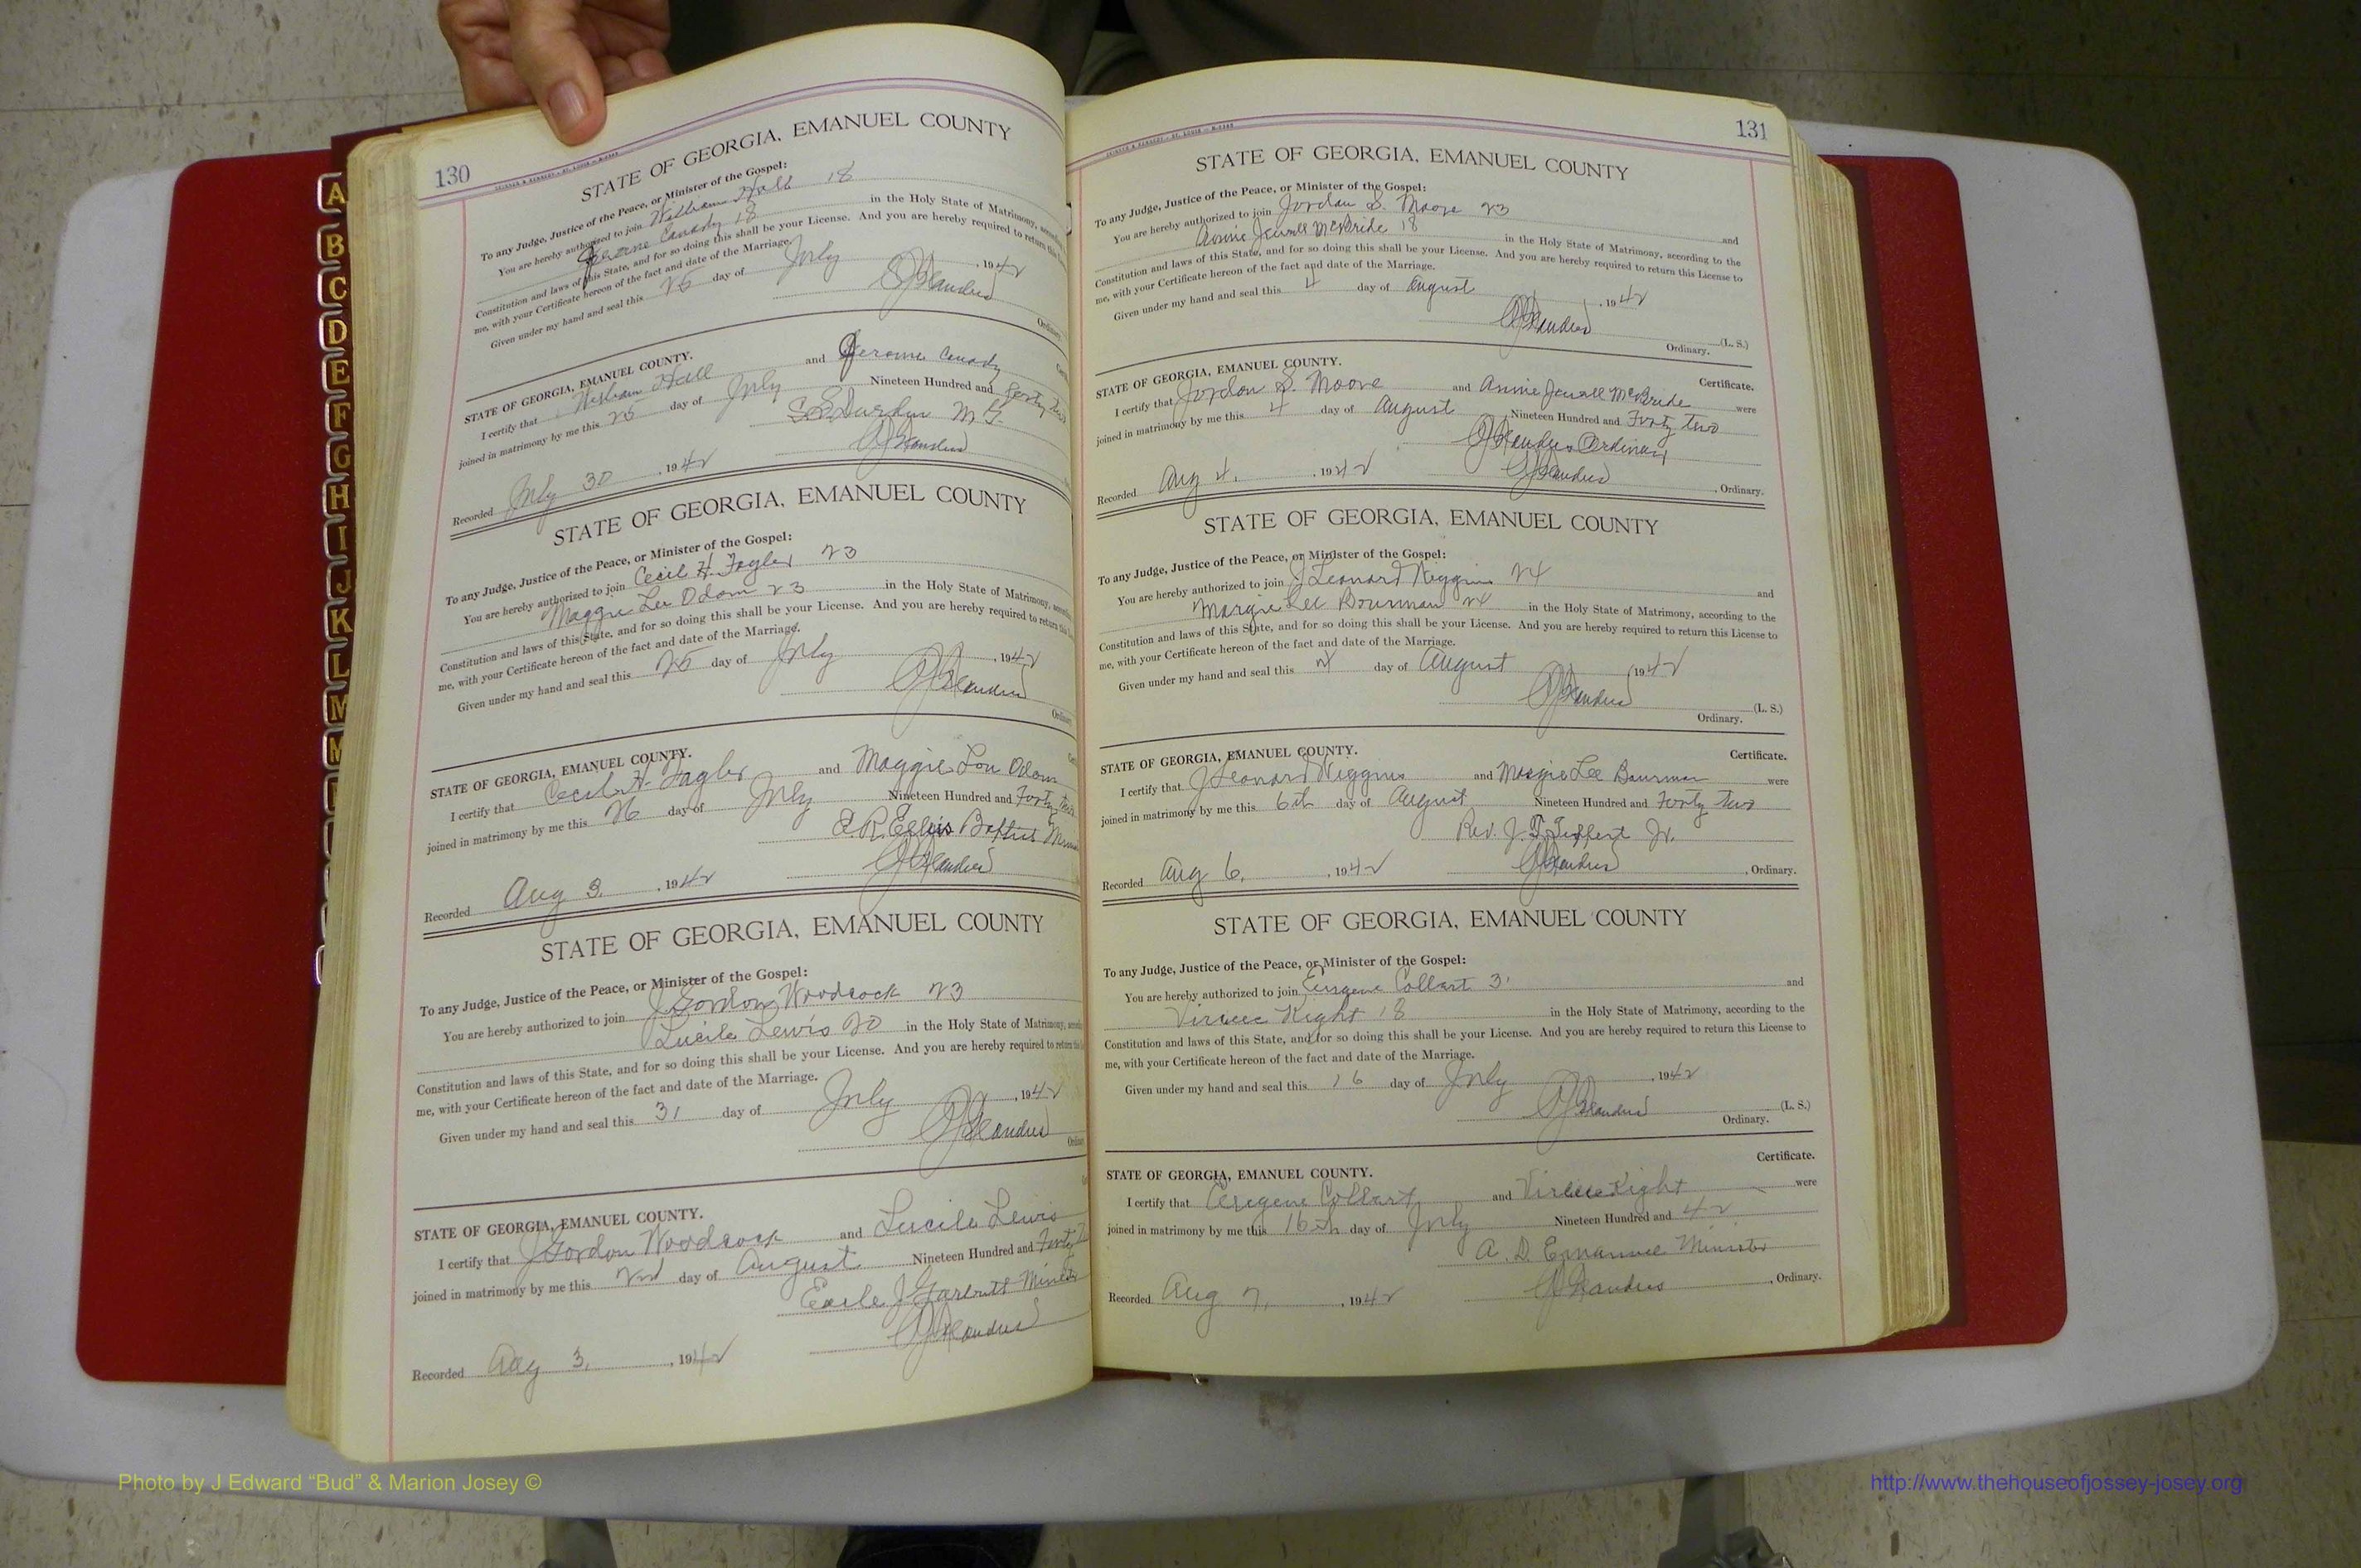 130
STATE OF GEORGIA, EMANUEL COUNTY
To any Judge, Justice of the Peace, or Minister of the Gospel:
You are hereby authorized to join William Hall 18
Canady 18 in the Holy State of Matrimony,
Constitution and laws of this State, and for so doing this shall be your License. And you are hereby required to return
me, with your Certificate hereon of the fact and date of the Marriage.
Given under my hand and seal this 25 day of July, 1942
Ordinary
STATE OF GEORGIA, EMANUEL COUNTY.
I certify that William Hall and Canady
joined in matrimony by me this 25 day of July Nineteen Hundred and Forty two
Durden M. G.
Recorded July 30, 1942
STATE OF GEORGIA, EMANUEL COUNTY
To any Judge, Justice of the Peace, or Minister of the Gospel:
You are hereby authorized to join Cecil H. Fagler 23
Maggie Lee Odom 23 in the Holy State of Matrimony,
Constitution and laws of this State, and for so doing this shall be your License. And you are hereby required to return
me, with your Certificate hereon of the fact and date of the Marriage.
Given under my hand and seal this 25 day of July, 1942
STATE OF GEORGIA, EMANUEL COUNTY.
I certify that Cecil H. Fagler and Maggie Lou Odom
joined in matrimony by me this 26 day of July Nineteen Hundred and Forty
E R Ellis Baptist
Recorded Aug 3, 1942
STATE OF GEORGIA, EMANUEL COUNTY
To any Judge, Justice of the Peace, or Minister of the Gospel:
You are hereby authorized to join J Gordon Woodcock 23
Lucile Lewis 20 in the Holy State of Matrimony,
Constitution and laws of this State, and for so doing this shall be your License. And you are hereby required to return
me, with your Certificate hereon of the fact and date of the Marriage.
Given under my hand and seal this 31 day of July, 1942
STATE OF GEORGIA, EMANUEL COUNTY.
I certify that J Gordon Woodcock and Lucile Lewis
joined in matrimony by me this 2nd day of August Nineteen Hundred and Forty
Earle J Garbutt Minister
Recorded Aug 3, 1942
131
STATE OF GEORGIA, EMANUEL COUNTY
To any Judge, Justice of the Peace, or Minister of the Gospel:
You are hereby authorized to join Jordan S. Moore 23 and
Annie Jewell McBride 18 in the Holy State of Matrimony, according to the
Constitution and laws of this State, and for so doing this shall be your License. And you are hereby required to return this License to
me, with your Certificate hereon of the fact and date of the Marriage.
Given under my hand and seal this 4 day of August, 1942
(L. S.)
Ordinary.
STATE OF GEORGIA, EMANUEL COUNTY. Certificate.
I certify that Jordan S. Moore and Annie Jewell McBride were
joined in matrimony by me this 4 day of August Nineteen Hundred and Forty two
Ordinary
Recorded Aug 4, 1942, Ordinary.
STATE OF GEORGIA, EMANUEL COUNTY
To any Judge, Justice of the Peace, or Minister of the Gospel:
You are hereby authorized to join J Leonard Wiggins 24 and
Margie Lee Bourman 24 in the Holy State of Matrimony, according to the
Constitution and laws of this State, and for so doing this shall be your License. And you are hereby required to return this License to
me, with your Certificate hereon of the fact and date of the Marriage.
Given under my hand and seal this 4 day of August 1942
(L. S.)
Ordinary.
STATE OF GEORGIA, EMANUEL COUNTY. Certificate.
I certify that J Leonard Wiggins and Margie Lee Bourman were
joined in matrimony by me this 6th day of August Nineteen Hundred and Forty two
Rev. J. T. Tippett Jr.
Recorded Aug 6, 1942, Ordinary.
STATE OF GEORGIA, EMANUEL COUNTY
To any Judge, Justice of the Peace, or Minister of the Gospel:
You are hereby authorized to join Eugene Collart 31 and
Kight 18 in the Holy State of Matrimony, according to the
Constitution and laws of this State, and for so doing this shall be your License. And you are hereby required to return this License to
me, with your Certificate hereon of the fact and date of the Marriage.
Given under my hand and seal this 16 day of July, 1942
(L. S.)
Ordinary.
STATE OF GEORGIA, EMANUEL COUNTY. Certificate.
I certify that Eugene Collart and Kight were
joined in matrimony by me this 16th day of July Nineteen Hundred and 42
A. D. Emanuel Minister
Recorded Aug 7, 1942, Ordinary.
A
B
C
D
E
F
G
H
I
J
K
L
M
Photo by J Edward “Bud” & Marion Josey ©
http://www.thehouseofjossey-josey.org